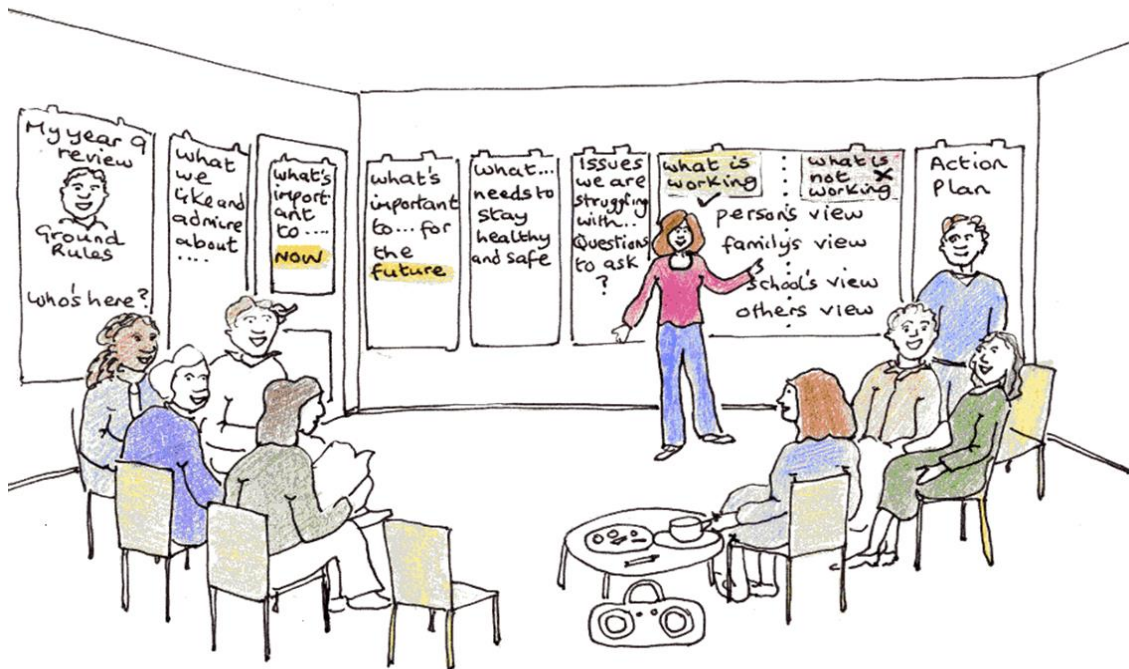 My year 9
review
Ground
Rules
who's here?
what
we
like and
admire
about
....
what's
import-
ant
to ....
NOW
what's
important
to... for
the
future
what...
needs to
stay
healthy
and safe
Issues
we are
struggling
with...
Questions
to ask
?
what is
working
what is
not
working
person's view
family's view
school's view
others view
Action
Plan